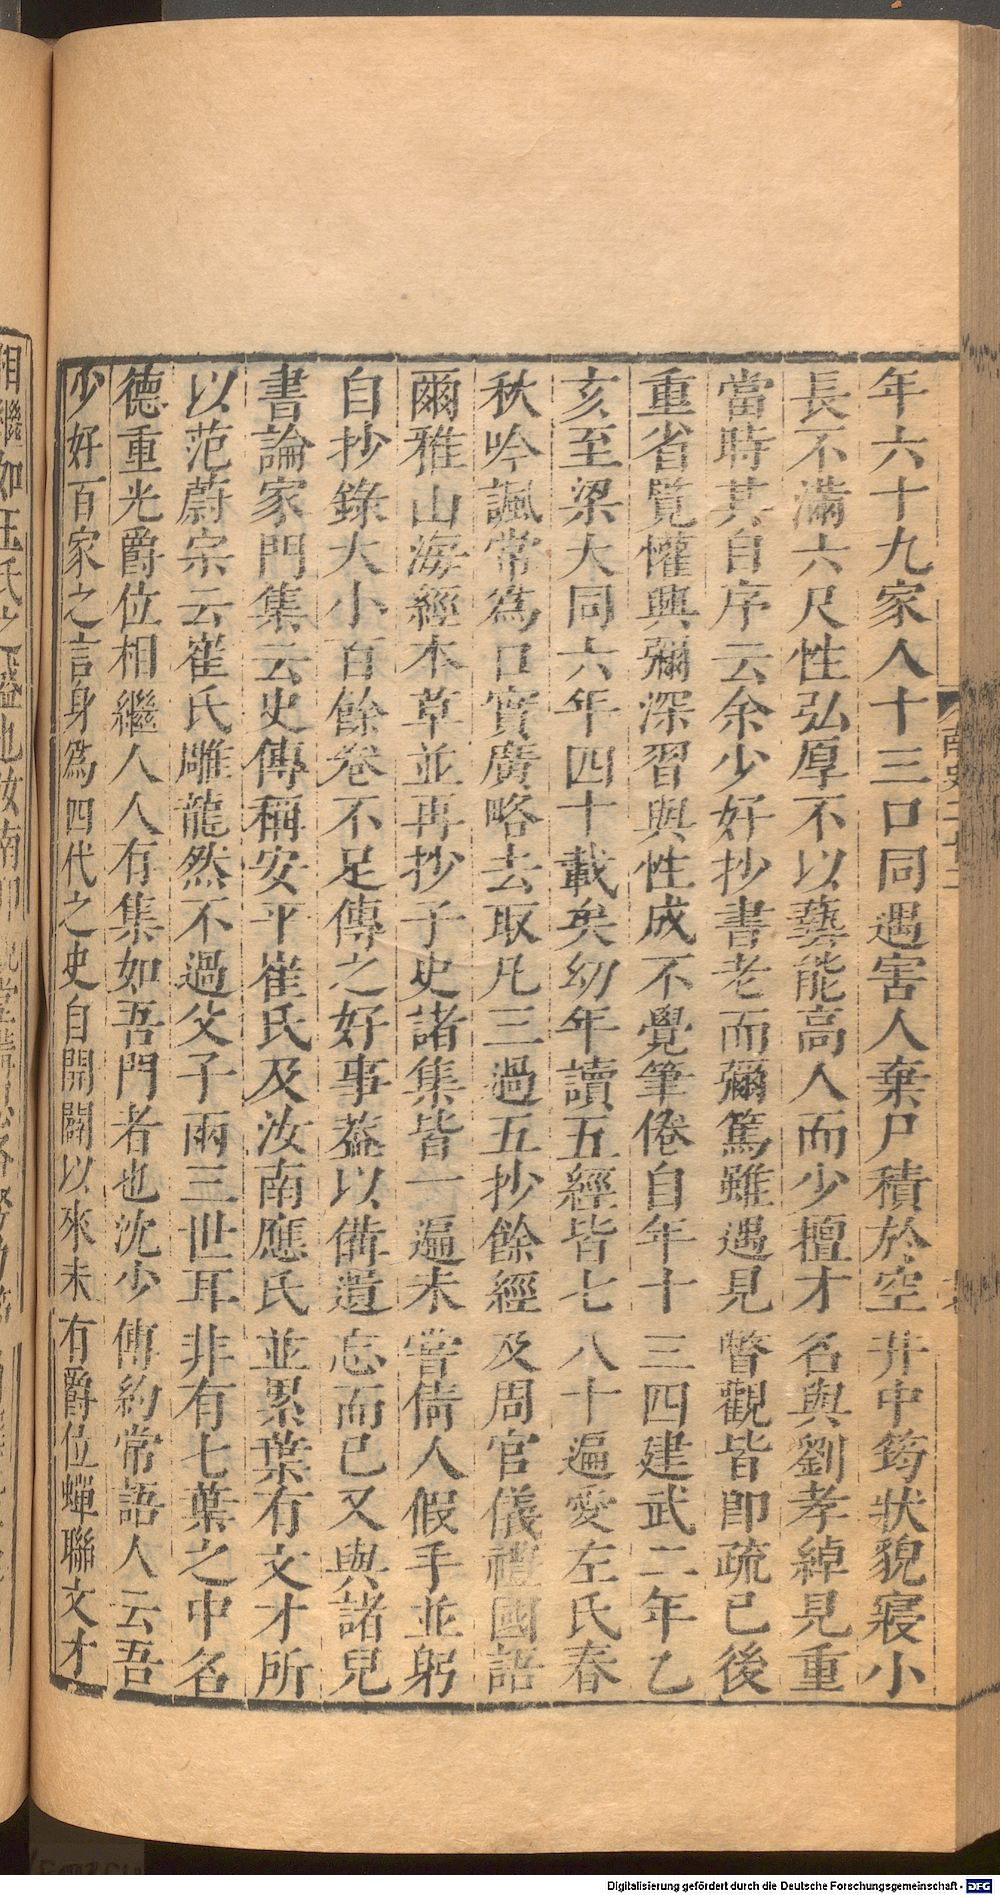 年六十九家人十三口同遇害人棄尸積於空井中筠狀貌寢小
長不滿六尺性弘厚不以藝能高人而少擅才名與劉孝綽見重
當時其自序云余少好抄書老而彌篤雖遇見瞥觀皆即疏已後
重省覽懽興彌深習與性成不覺筆倦自年十三四建武二年乙
亥至梁大同六年四十載矣幼年讀五經皆七八十遍愛左氏春
秋吟諷常爲口實廣略去取凡三過五抄餘經及周官儀禮國語
爾雅山海經本草並再抄子史諸集皆一遍未嘗倩人假手並躬
自抄錄大小百餘卷不足傳之好事葢以備遺忘而已又與諸兒
書論家門集云史傳稱安平崔氏及汝南應氏並累葉有文才所
以范蔚宗云崔氏雕龍然不過父子兩三世耳非有七葉之中名
德重光爵位相繼人人有集如吾門者也沈少傅約常語人云吾
少好百家之言身爲四代之史自開闢以來未有爵位蟬聯文才
相繼如王氏之盛也汝南
Digitalisierung gefördert durch die Deutsche Forschungsgemeinschaft - DFG